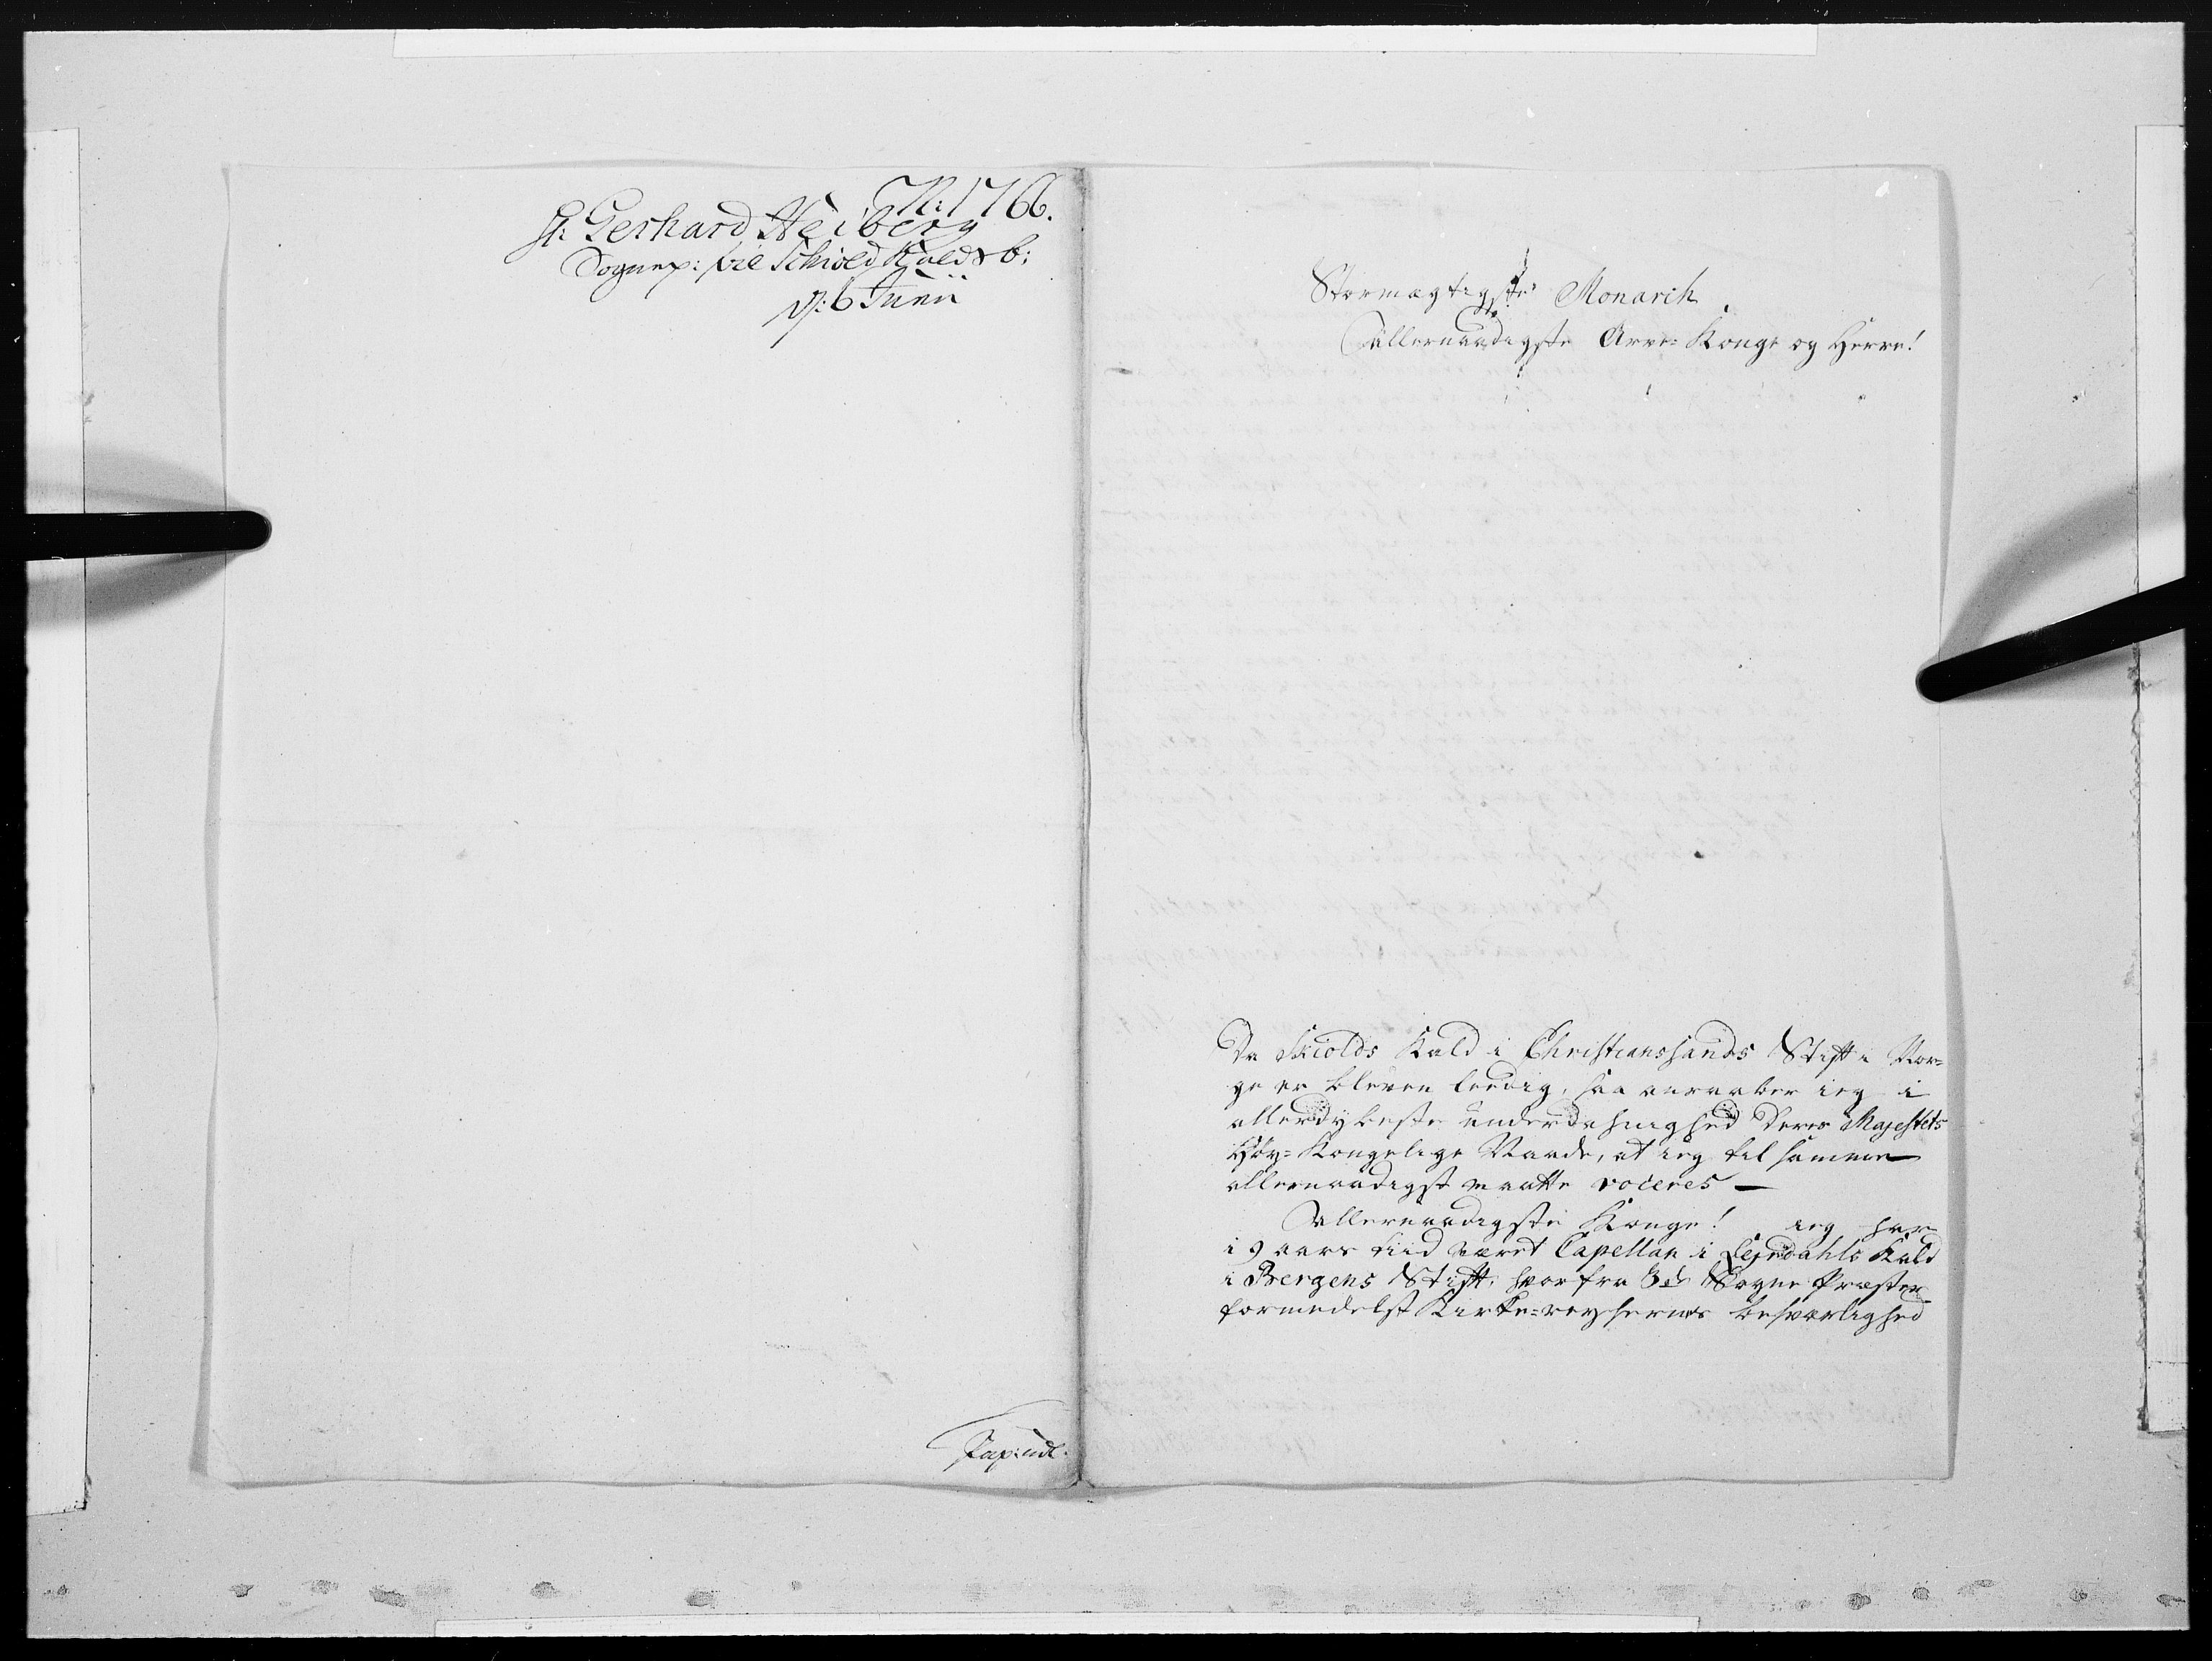 N: 1766.
H: Gerhard Heiberg
Sognep: til Schiold Kald b:
d: 6 Junii
Stormægtigste Monarch
Allernaadigste Arve-Konge og Herre!
Da Skiolds Kald i Christianssands Stift i Nor-
ge er bleven leedig, saa anraaber ieg i
allerdybeste underdanighed Deres Majestets
Høy-Kongelige Naade, at ieg til samme
allernaadigst maatte voceres —
Allernaadigste Konge! ieg har
i 9 aars tiid været Capellan i Lejrdahls Kald
i Bergens Stift, hvorfra 3de Sogne Præster
formedelst Kirke-reysernes besværlighed